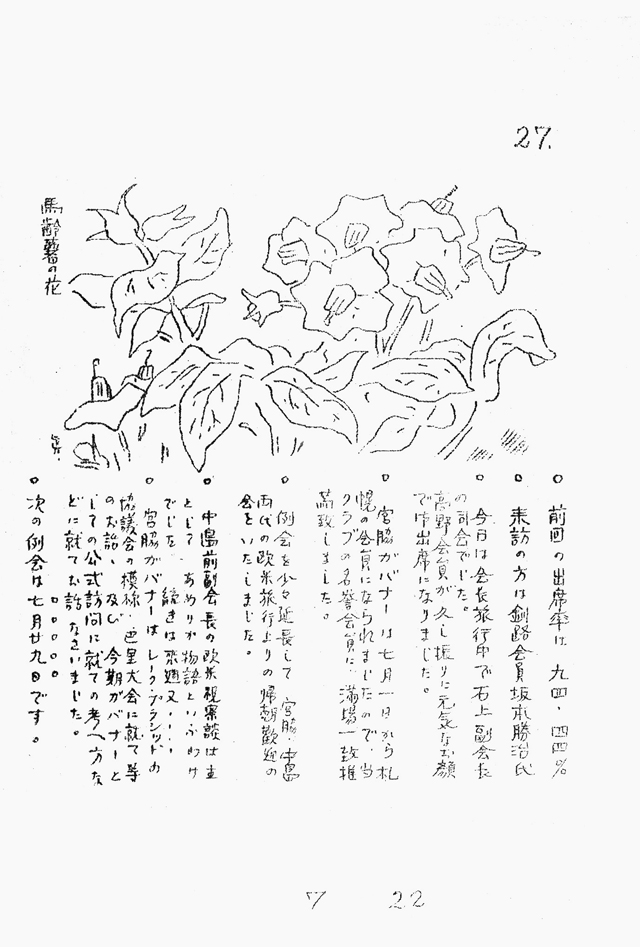 27.
馬齢薯の花
。前回の出席率は 九四・四四%
。来訪の方は釧路会員坂本勝治氏
。今日は会長旅行中で石上副会長
の司会でした。
高野会員が久し振りに元気なお顔
で御出席になりました。
。宮脇ガバナーは七月一日から札
幌の会員になられましたので、当
クラブの名誉会員に、満場一致推
薦致しました。
。例会を少々延長して 宮脇、中島
両氏の欧米旅行よりの帰朝歓迎の
会をいたしました。
。中島前副会長の欧米視察談は主
として あめりか物語というわけ
でした 続きは来週又・・・
。宮脇ガバナーはレークプラシッドの
協議会の模様、巴里大会に就て等
のお話、及び 今期ガバナーと
しての公式訪問に就ての考へ方な
どに就てお話なさいました。
。。。。。
。次の例会は七月廿九日です。
7 22